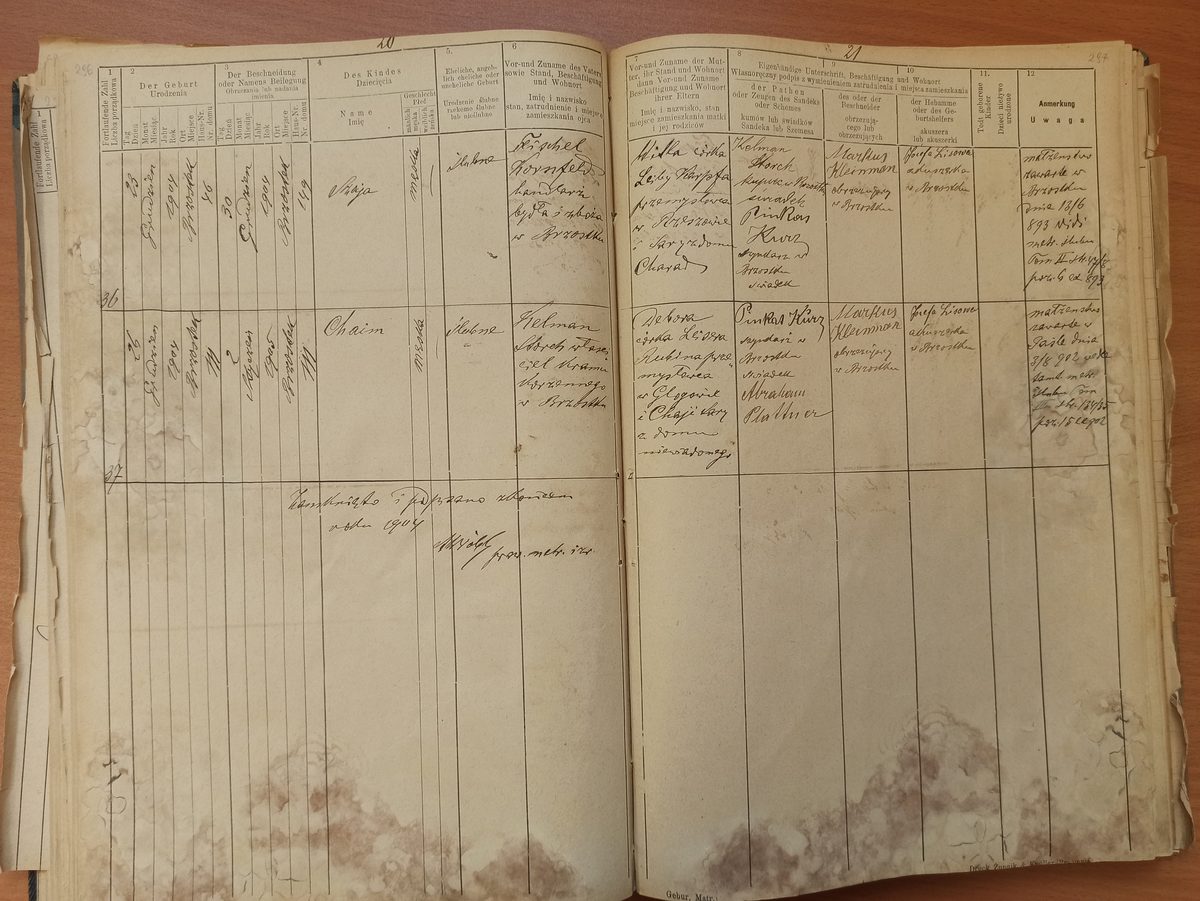 20
296
1
2
3
4
5.
6
Fortlaufende Zahl
Liczba porządkowa
Der Geburt
Urodzenia
Tag
Dzień
Monat
Miesiąc
Jahr
Rok
Ort
Miejsce
Haus-Nr.
Nr. domu
Der Beschneidung
oder Namens Beilegung
Obrzezania lub nadania
imienia
Tag
Dzień
Monat
Miesiąc
Jahr
Rok
Ort
Miejsce
Haus-Nr.
Nr. domu
Des Kindes
Dziecięcia
Name
Imię
Geschlecht
Płeć
männlich
męska
weiblich
żeńska
Eheliche, angeb-
lich eheliche oder
uneheliche Geburt
Urodzenie ślubne
rzekomo ślubne
lub nieślubne
Vor-und Zuname des Vaters
sowie Stand, Beschäftigung
und Wohnort
Imię i nazwisko,
stan, zatrudnienie i miejsce
zamieszkania ojca
36
23
Grudzień
1904
Brzostek
30
Grudzień
1904
Brzostek
149
Szaja
męska
ślubne
Fischel
Kornfeld
handlarz
bydła i zboża
w Brzostku
37
Grudzień
1904
Brzostek
111
2
1905
Brzostek
111
Chaim
męska
ślubne
Kelman
Storch właści
ciel kramu
korzennego
w Brzostku
Zamknięto i podpisano z końcem
roku 1904
prow. metr. izr.
21
297
7.
8
9
10
11.
12
Vor-und Zuname der Mut-
ter, ihr Stand und Wohnort
dann Vor- und Zuname
Beschäftigung und Wohnort
ihrer Eltern
Imię i nazwisko, stan
i miejsce zamieszkania matki
i jej rodziców
Eigenhändige Unterschrift, Beschäftigung und Wohnort
Własnoręczny podpis z wymienieniem zatrudnienia i miejsca zamieszkania
der Pathen
oder Zeugen des Sandeks
oder Schemes
kumów lub świadków
Sandeka lub Szemesa
des oder der
Beschneider
obrzezują-
cego lub
obrzezujących
der Hebamme
oder des Ge-
burtshelfers
akuszera
lub akuszerki
Todt geborene
Kinder
Dzieci nieżywo
urodzone
Anmerkung
Uwaga
Witla córka
Leiby Karpfa
przemysłowca
w Rzeszowie
i Sary z domu
Charad
Kelman
Storch
kupiec w Brzostku
świadek
Pinkas
Kurz
w
Brzostku
świadek
Markus
Kleinman
obrzezujący
w Brzostku
Józefa Lisowa
akuszerka
w Brzostku
małżeństwo
zawarte w
Brzostku
dnia 13/6
893 widz
metr. ślubu
Tom II str.
poz. 6 ex 893
Debora
córka Leisera
Rubina prze
mysłowca
w Głogowie
i Chaji Sary
z domu
niewiadomego
Pinkas Kurz
w
Brzostku
świadek
Abraham
Plattner
Markus
Kleinman
obrzezujący
w Brzostku
Józefa Lisowa
akuszerka
w Brzostku
małżeństwo
zawarte w
Jaśle dnia
3/8 902 wedle
tamt. metr.
ślubu Tom
str. 134/35
poz. 15 ex 902
Gebur. Matr.